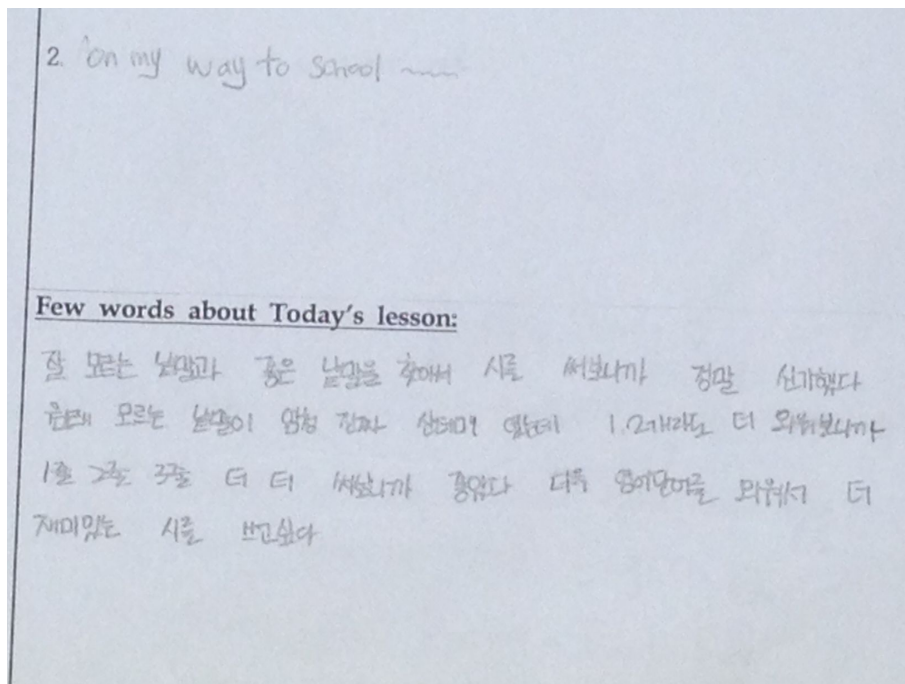 2. "on my way to school ~~~
Few words about Today's lesson:
잘 모르는 낱말과 좋은 낱말을 찾아서 시를 써보니까 정말 신기했다
원래 모르는 낱말이 엄청 진짜 산데미 였는데 1.2개라도 더 외워보니까
1줄 2줄 3줄 더 더 써보니까 좋았다 더욱 영어단어를 외워서 더
재미있는 시를 쓰고싶다